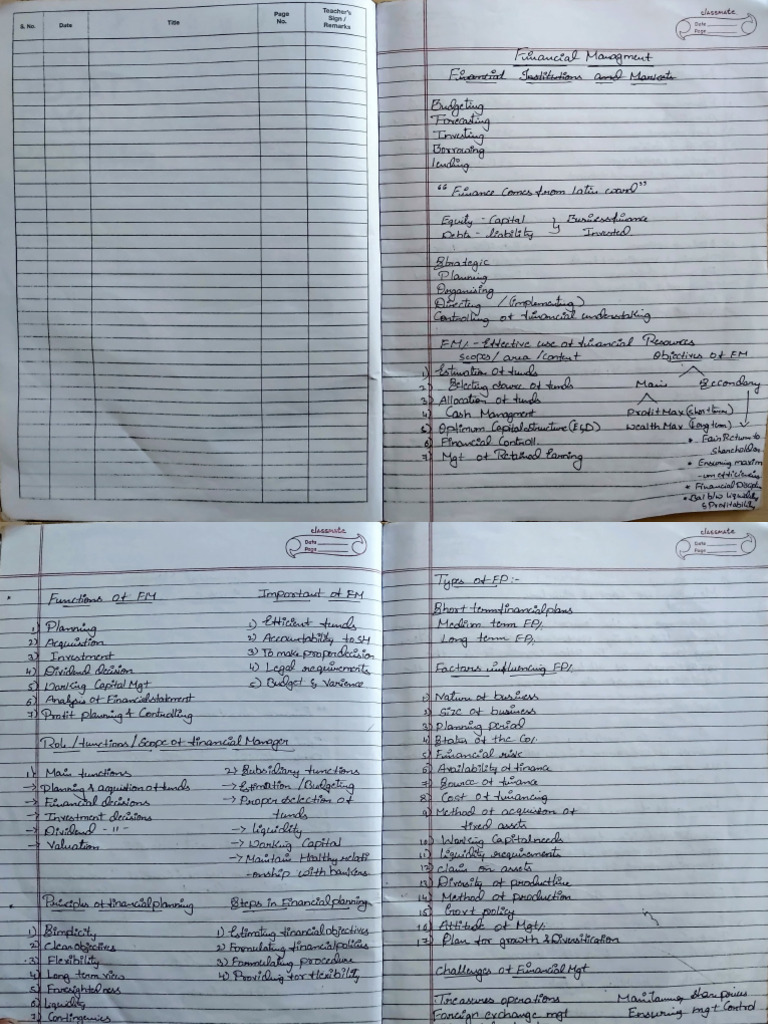 S. No.
Date
Title
Page No.
Teacher's Sign / Remarks
classmate
Date
Page
Financial Managment
Financial Institutions and Markets
Budgeting
Forecasting
Investing
Borrowing
lending
"Finance comes from latin word"
Equity - Capital } Business finance
Debts - liability } Invested
Strategic
Planning
Organising
Directing / (implementing)
Controlling of financial undertaking
FM/. - Effective use of financial Resources
scopes / area / content
1) Estimation of funds
2) Selecting source of funds
3) Allocation of funds
4) Cash Managment
5) Optimum Capital structure (E&D)
6) Financial Controll.
7) Mgt of Retained Earning
Objectives of FM
Main
Secondary
Profit Max (short term)
Wealth Max (long term)
* Fair Return to
Shareholders
* Ensuring maxim
-um efficiencies
* Financial Discpl
* Bal b/w liquidity
& Profitability
classmate
Date
Page
Functions of FM
1) Planning
2) Acquistion
3) Investment
4) Dividend decision
5) Working Capital Mgt
6) Analysis of Financial statement
7) Profit planning & Controlling
Important of FM
1) Efficient funds
2) Accountability to SH
3) To make proper decision
4) Legal requirements
5) Budget & Varience
Role / functions / Scope of financial Manager
1) Main functions
-> Planning & acquistion of funds
-> Financial decisions
-> Investment decisions
-> Dividend - " -
-> Valuation
2) Subsidiary functions
-> Estimation / Budgeting
-> Proper selection of
funds
-> liquidity
-> Working Capital
-> Maintain Healthy relati
-onship with bankers
Principles of financial planning
1) Simplicity
2) Clear objectives
3) Flexibility
4) Long term view
5) Foresightedness
6) Liquidity
7) Contingencies
Steps in Financial planning
1) Estimating financial objectives
2) Formulating financial policies
3) Formulating procedure
4) Providing for flexibility
classmate
Date
Page
Types of FP :-
Short term financial plans
Medium term FP/.
Long term FP/.
Factors influencing FP/.
1) Nature of business
2) Size of business
3) Planning period
4) Status of the Co/.
5) Financial risk
6) Availability of finance
7) Source of finance
8) Cost of financing
9) Method of acquision of
fixed assets
10) Working Capital needs
11) Liquidity requirements
12) claim on assets
13) Diversity of product line
14) Method of production
15) Govt policy
16) Attitude of Mgt/.
17) Plan for growth & Diversification
Challenges of Financial Mgt
Treasures operations
Foreign exchange mgt
Maintaining Share prices
Ensuring mgt Control